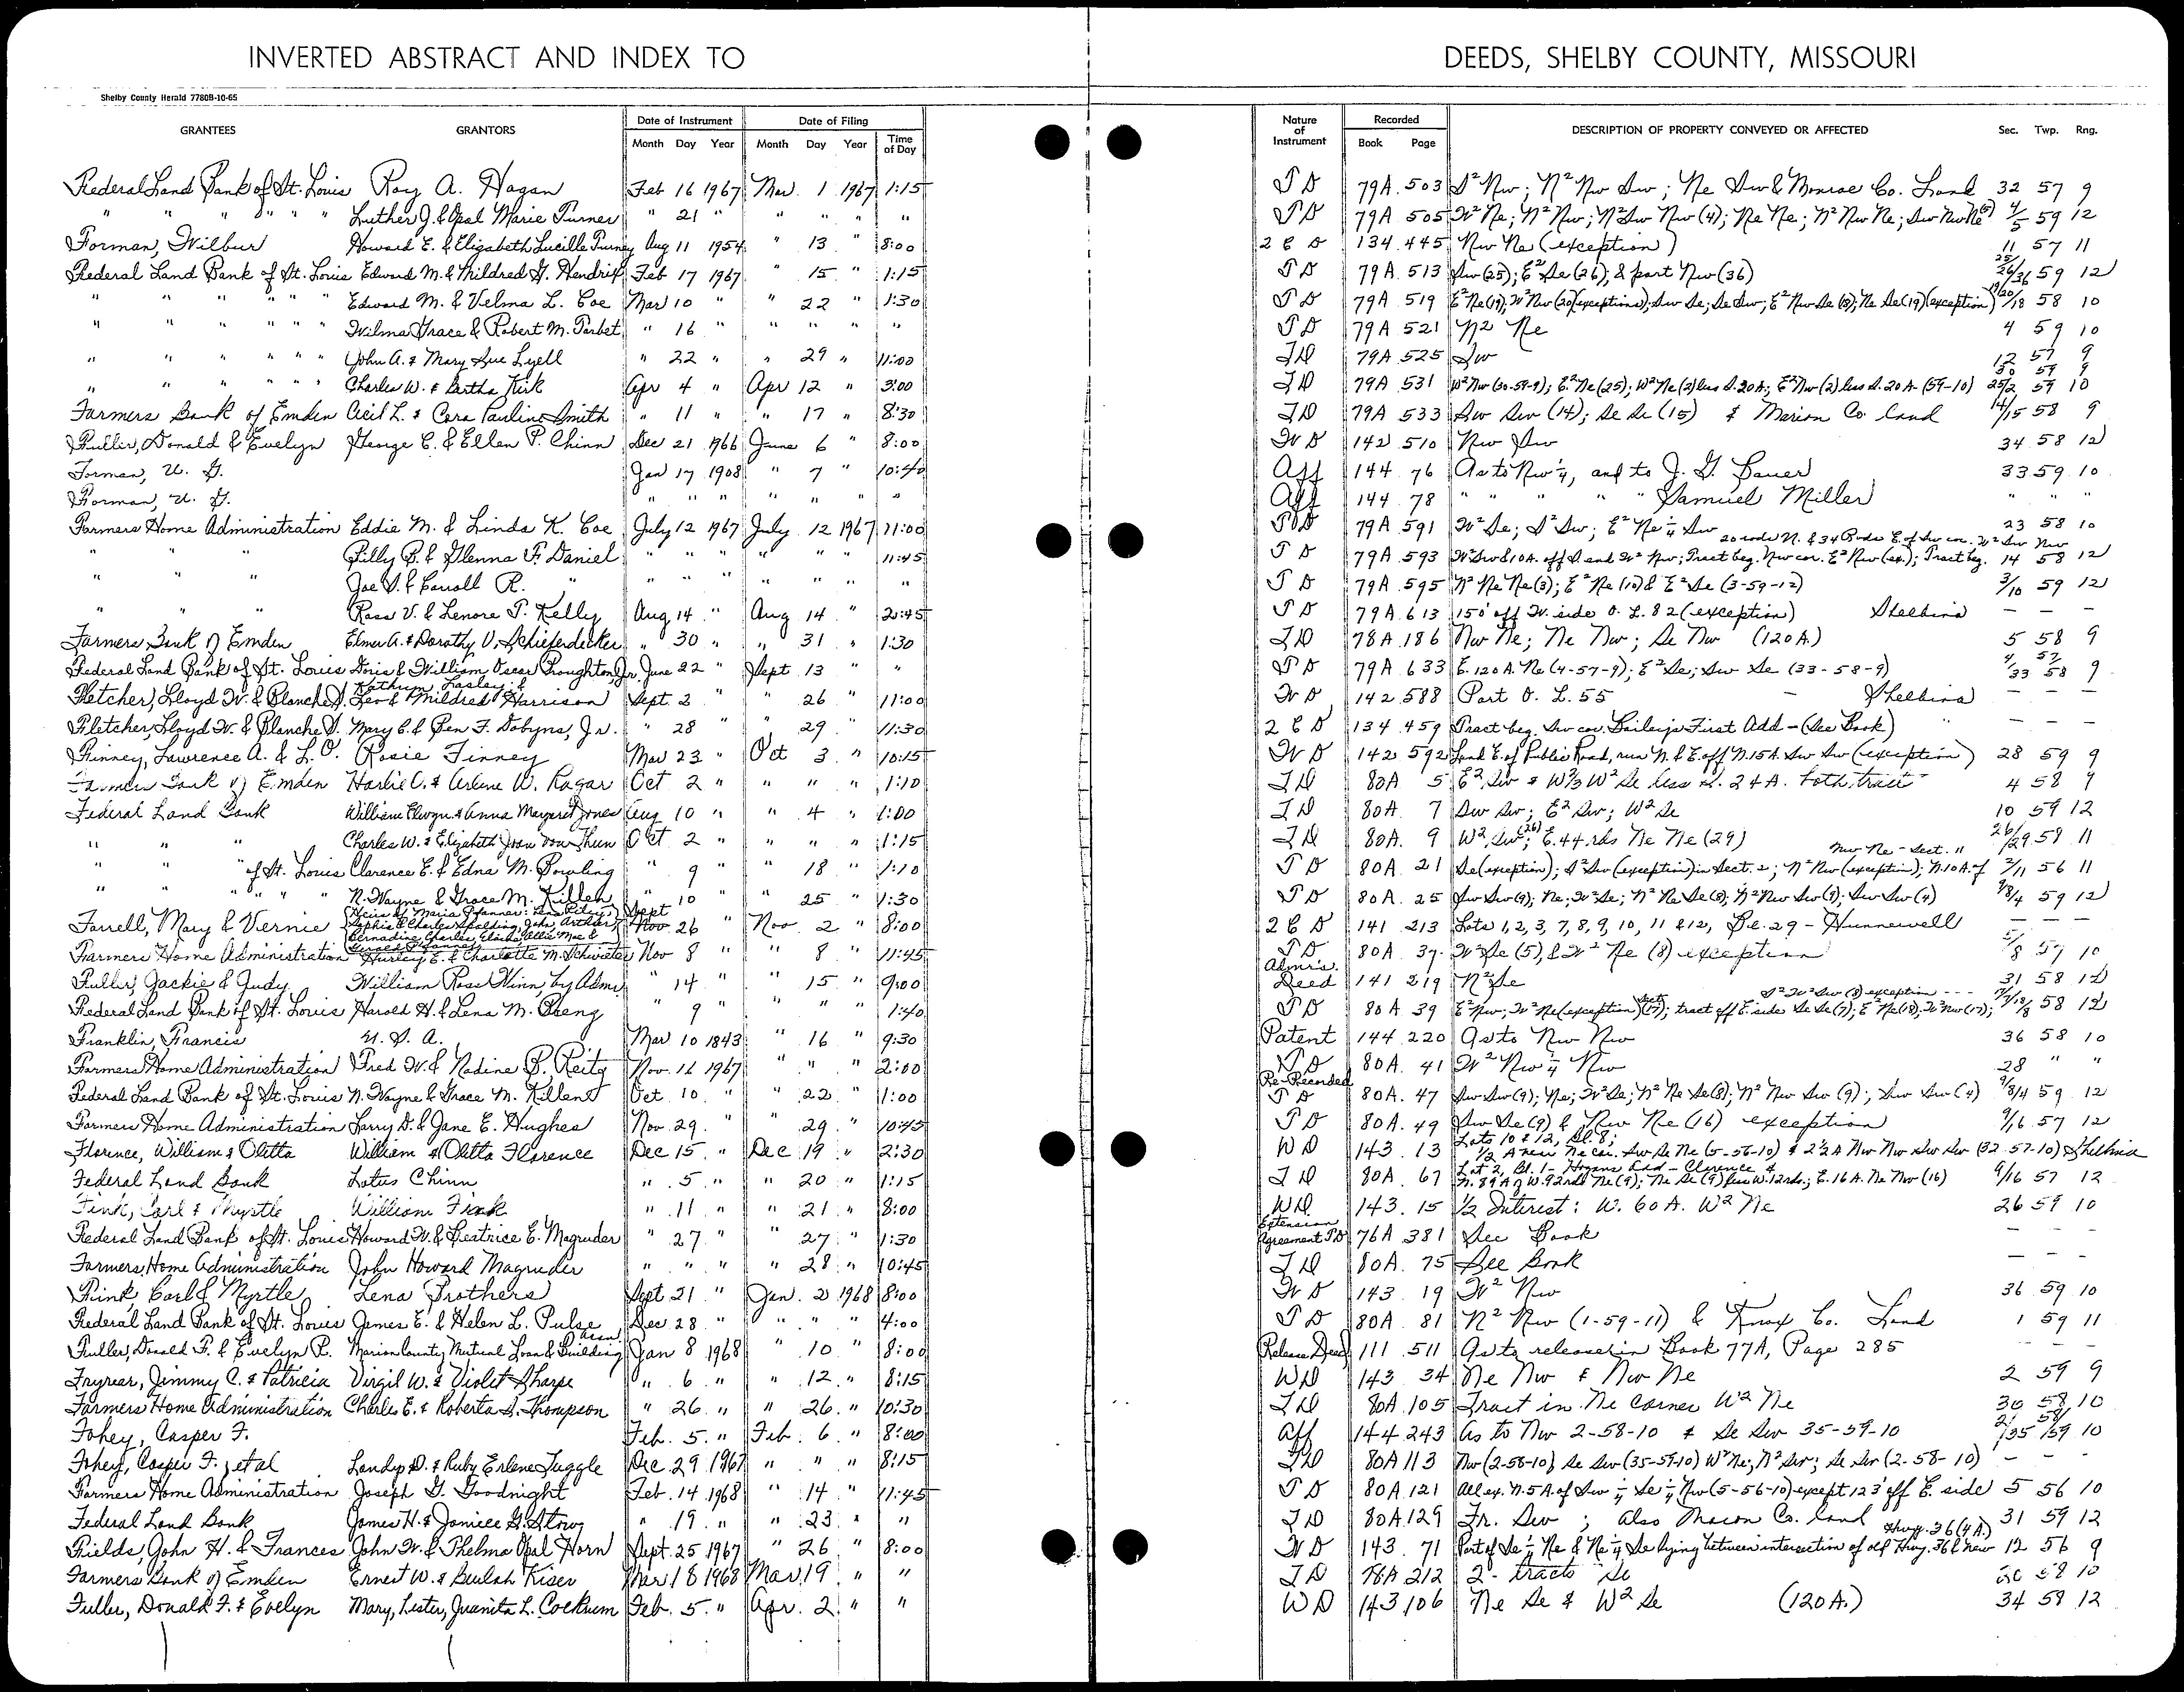 INVERTED ABSTRACT AND INDEX TO DEEDS, SHELBY COUNTY, MISSOURI
Shelby County Herald 7780B-10-65
GRANTEES GRANTORS Date of Instrument Date of Filing Nature of Instrument Recorded DESCRIPTION OF PROPERTY CONVEYED OR AFFECTED Sec. Twp. Rng.
Month Day Year Month Day Year Time of Day Book Page
Federal Land Bank of St. Louis Roy A. Hagan Feb 16 1967 Mar. 1 1967 1:15 TD 79A 503 S² Nw; N² Nw Sw; Ne Sw & Monroe Co. Land 32 57 9
" " " " " " Luther J. & Opal Marie Turner " 21 " " " " " TD 79A 505 W² Ne; N² Nw; N² Sw Nw (4); Ne Ne; N² Nw Ne; Sw Nw Ne (5) 4/5 59 12
Forman, Wilbur Howard E. & Elizabeth Lucille Turney Aug 11 1954 " 13 " 8:00 2 C D 134 445 Nw Ne (exception) 11 57 11
Federal Land Bank of St. Louis Edward M. & Mildred G. Hendrix Feb 17 1967 " 15 " 1:15 TD 79A 513 Sw (25); E² Se (26); & part Nw (36) 25/26/36 59 12
" " " " " " Edward M. & Velma L. Coe Mar 10 " " 22 " 1:30 TD 79A 519 E² Ne (19); W² Nw (20)(exceptions); Sw Se; Se Sw; E² Nw Se (18); Ne Se (19)(exception) 19/20/18 58 10
" " " " " " Wilma Grace & Robert M. Tarbet " 16 " " " " " TD 79A 521 N² Ne 4 59 10
" " " " " " John A. & Mary Sue Lyell " 22 " " 29 " 11:00 TD 79A 525 Sw 12 57 9
" " " " " " Charles W. & Bertha Kirk Apr 4 " Apr 12 " 3:00 TD 79A 531 W² Nw (30-59-9); E² Ne (25); W² Ne (2) less S. 20A.; E² Nw (2) less S. 20A. (59-10) 30 59 9 25/2 59 10
Farmers Bank of Emden Cecil L. & Cora Pauline Smith " 11 " " 17 " 8:30 TD 79A 533 Sw Sw (14); Se Se (15) & Marion Co. land 14/15 58 9
Fuller, Donald & Evelyn George C. & Ellen P. Chinn Dec 21 1966 June 6 " 8:00 WD 142 510 Nw Sw 34 58 12
Forman, U. G. Jan 17 1908 " 7 " 10:40 Aff 144 76 As to Nw ¼, and to J. G. Bauer 33 59 10
Forman, U. G. " " " " " " " Aff 144 78 " " " " " Samuel Miller " " "
Farmers Home Administration Eddie M. & Linda K. Coe July 12 1967 July 12 1967 11:00 TD 79A 591 W² Se; S² Sw; E² Ne ¼ Sw 23 58 10
" " " Billy B. & Glenna F. Daniel " " " " " " 11:45 TD 79A 593 W² Sw & 10A. off S. end W² Nw; Tract beg. Nw cor. E² Nw (ex.); Tract beg. 20 rods N. & 34 Rods E. of Sw cor. W² Sw Nw 14 58 12
" " " Joe D. & Carroll R. " " " " " " " " TD 79A 595 N² Ne Ne (3); E² Ne (10) & E² Se (3-59-12) 3/10 59 12
" " Ross V. & Lenore T. Kelly Aug 14 " Aug 14 " 2:45 TD 79A 613 150' off W. side O. L. 82 (exception) Shelbina — — —
Farmers Bank of Emden Elmer A. & Dorothy V. Schieferdecker " 30 " " 31 " 1:30 TD 78A 186 Nw Ne; Ne Nw; Se Nw (120A.) 5 58 9
Federal Land Bank of St. Louis Doris & William Oscar Broughton, Jr. June 22 " Sept 13 " " TD 79A 633 E. 120A. Ne (4-57-9); E² Se; Sw Se (33-58-9) 4/33 57/58 9
Fletcher, Lloyd W. & Blanche D. Kathryn Lasley & Leo & Mildred Harrison Sept. 2 " " 26 " 11:00 WD 142 588 Part O. L. 55 — Shelbina — — —
Fletcher, Lloyd W. & Blanche D. Mary C. & Ben F. Dobyns, Jr. " 28 " " 29 " 11:30 2 C D 134 459 Tract beg. Sw cor. Bailey's First Add — (See Book) " — — —
Finney, Lawrence A. & L. O. Rosie Finney Mar 23 " Oct 3 " 10:15 WD 142 592 Land E. of Public Road, run N. & E. off N. 15A. Sw Sw (exception) 28 59 9
Farmers Bank of Emden Harlie C. & Arlene W. Ragar Oct 2 " " " " 1:10 TD 80A 5 E² Sw & W⅔ W² Se less S. 24A. both tracts 4 58 9
Federal Land Bank William Elwyn & Anna Margaret Jones Aug 10 " " 4 " 1:00 TD 80A. 7 Sw Sw; E² Sw; W² Se 10 59 12
" " " Charles W. & Elizabeth Joan Von Thun Oct 2 " " " " 1:15 TD 80A. 9 W² Sw (26); E. 44 rds Ne Ne (29) 26/29 58 11
" " " of St. Louis Clarence E. & Edna M. Bowling " 9 " " 18 " 1:10 TD 80A. 21 Se (exception); S² Sw (exception) in Sect. 2; N² Nw (exception); N. 10A. of Nw Ne - Sect. 11 2/11 56 11
" " " " " N. Wayne & Grace M. Killen " 10 " " 25 " 1:30 TD 80A. 25 Sw Sw (9); Ne; W² Se; N² Ne Se (8); N² Nw Sw (9); Sw Sw (4) 9/8/4 59 12
Farrell, Mary & Vernie Heirs of Maria Pfanner: Lena Riley, Sophia & Charles Spalding, John, Arthur, Bernadine, Charles, Elsie, Allie Mae & Gerald Pfanner Sept Nov. 26 " Nov. 2 " 8:00 2 C D 141 213 Lots 1, 2, 3, 7, 8, 9, 10, 11 & 12, Bl. 29 - Hunnewell — — —
Farmers Home Administration Hurley E. & Charlotte M. Schwieter Nov 8 " " 8 " 11:45 TD 80A. 37 W² Se (5), & W² Ne (8) exception 5/8 57 10
Fuller, Jackie & Judy William Ross Winn, by Admr. " 14 " " 15 " 9:00 Admr's. Deed 141 219 N² Se 31 58 12
Federal Land Bank of St. Louis Harold H. & Lena M. Breng " 9 " " " " 1:40 TD 80A 39 E² Nw; W² Ne (exception) Sect. (17); tract off E. side Se Se (7); E² Ne (18); W² Nw (17); S² W² Sw (8) exception 58 12
Franklin, Francis U. S. A. Mar 10 1843 " 16 " 9:30 Patent 144 220 As to Nw Nw 36 58 10
Farmers Home Administration Fred W. & Nadine B. Reitz Nov. 16 1967 " " " 2:00 TD 80A. 41 W² Nw ¼ Nw 28 " "
Federal Land Bank of St. Louis N. Wayne & Grace M. Killen Oct. 10 " " 22 " 1:00 Re-Recorded TD 80A. 47 Sw Sw (9); Ne; W² Se; N² Ne Se (8); N² Nw Sw (9); Sw Sw (4) 9/8/4 59 12
Farmers Home Administration Larry D. & Jane E. Hughes Nov. 29 " " 29 " 10:45 TD 80A. 49 Sw Se (9) & Nw Ne (16) exception 9/16 57 12
Florence, William & Olitta William & Olitta Florence Dec 15 " Dec 19 " 2:30 WD 143 13 Lots 10 & 12, Bl. 8; ½ A near Ne cor. Sw Se Ne (5-56-10) & 2½ A Nw Nw Sw Sw (32-57-10) Shelbina
Federal Land Bank Lotus Chinn " 5 " " 20 " 1:15 TD 80A. 67 Lot 2, Bl. 1 - Hogans Add - Clarence & N. 89A of W. 92 rds Ne (9); Ne Se (9) less W. 12 rds.; E. 16A. Ne Nw (16) 9/16 57 12
Fink, Carl & Myrtle William Fink " 11 " " 21 " 8:00 WD. 143. 15 ½ Interest: W. 60A. W² Ne 26 59 10
Federal Land Bank of St. Louis Howard W. & Beatrice E. Magruder " 27 " " 27 " 1:30 Extension Agreement TD 76A 381 See Book — — —
Farmers Home Administration John Howard Magruder " " " " 28 " 10:45 TD 80A. 75 See Book — — —
Fink, Carl & Myrtle Lena Brothers Sept 21 " Jan. 2 1968 8:00 WD 143 19 W² Nw 36 59 10
Federal Land Bank of St. Louis James E. & Helen L. Pulse Dec 28 " " " " 4:00 TD 80A. 81 N² Nw (1-59-11) & Knox Co. Land 1 59 11
Fuller, Donald F. & Evelyn P. Marion County Mutual Loan & Building Assn. Jan 8 1968 " 10 " 8:00 Release Deed 111 511 As to release in Book 77A, Page 285 — —
Fryrear, Jimmy C. & Patricia Virgil W. & Violet Sharpe " 6 " " 12 " 8:15 WD 143 34 Ne Nw & Nw Ne 2 59 9
Farmers Home Administration Charles E. & Roberta S. Thompson " 26 " " 26 " 10:30 TD 80A. 105 Tract in Ne Corner W² Ne 30 58 10
Fohey, Casper F. Feb. 5 " Feb. 6 " 8:00 Aff 144 243 As to Nw 2-58-10 & Se Sw 35-59-10 2/35 58/59 10
Fohey, Casper F. et al Landys D. & Ruby Erlene Tuggle Dec. 29 1967 " " " 8:15 TD 80A 113 Nw (2-58-10) Se Sw (35-59-10) W² Ne; N² Sw; Se Sw (2-58-10) — — —
Farmers Home Administration Joseph G. Goodnight Feb. 14 1968 " 14 " 11:45 TD 80A. 121 All ex. N. 5A. of Sw ¼ Se ¼ Nw (5-56-10) except 123' off E. side 5 56 10
Federal Land Bank James H. & Janice G. Strow " 19 " " 23 " " TD 80A 129 Fr. Sw; also Macon Co. land 31 59 12
Fields, John H. & Frances John W. & Thelma Opal Horn Sept. 25 1967 " 26 " 8:00 WD 143 71 Part of Se ¼ Ne & Ne ¼ Se lying between intersection of old Hwy. 36 & new Hwy. 36 (4A.) 12 56 9
Farmers Bank of Emden Ernest W. & Beulah Kiser Mar 18 1968 Mar 19 " " TD 78A 212 2 - tracts Se 20 58 10
Fuller, Donald F. & Evelyn Mary, Lester, Juanita L. Cockrum Feb. 5 " Apr. 2 " " WD 143 106 Ne Se & W² Se (120A.) 34 58 12